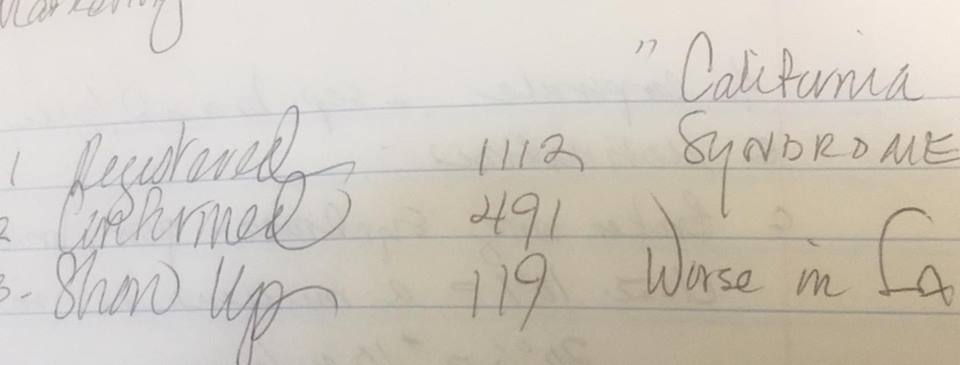 Marketing
" California
1 Registered 1112 SYNDROME
2 Confirmed 491
3- Show Up 119 Worse in Ca